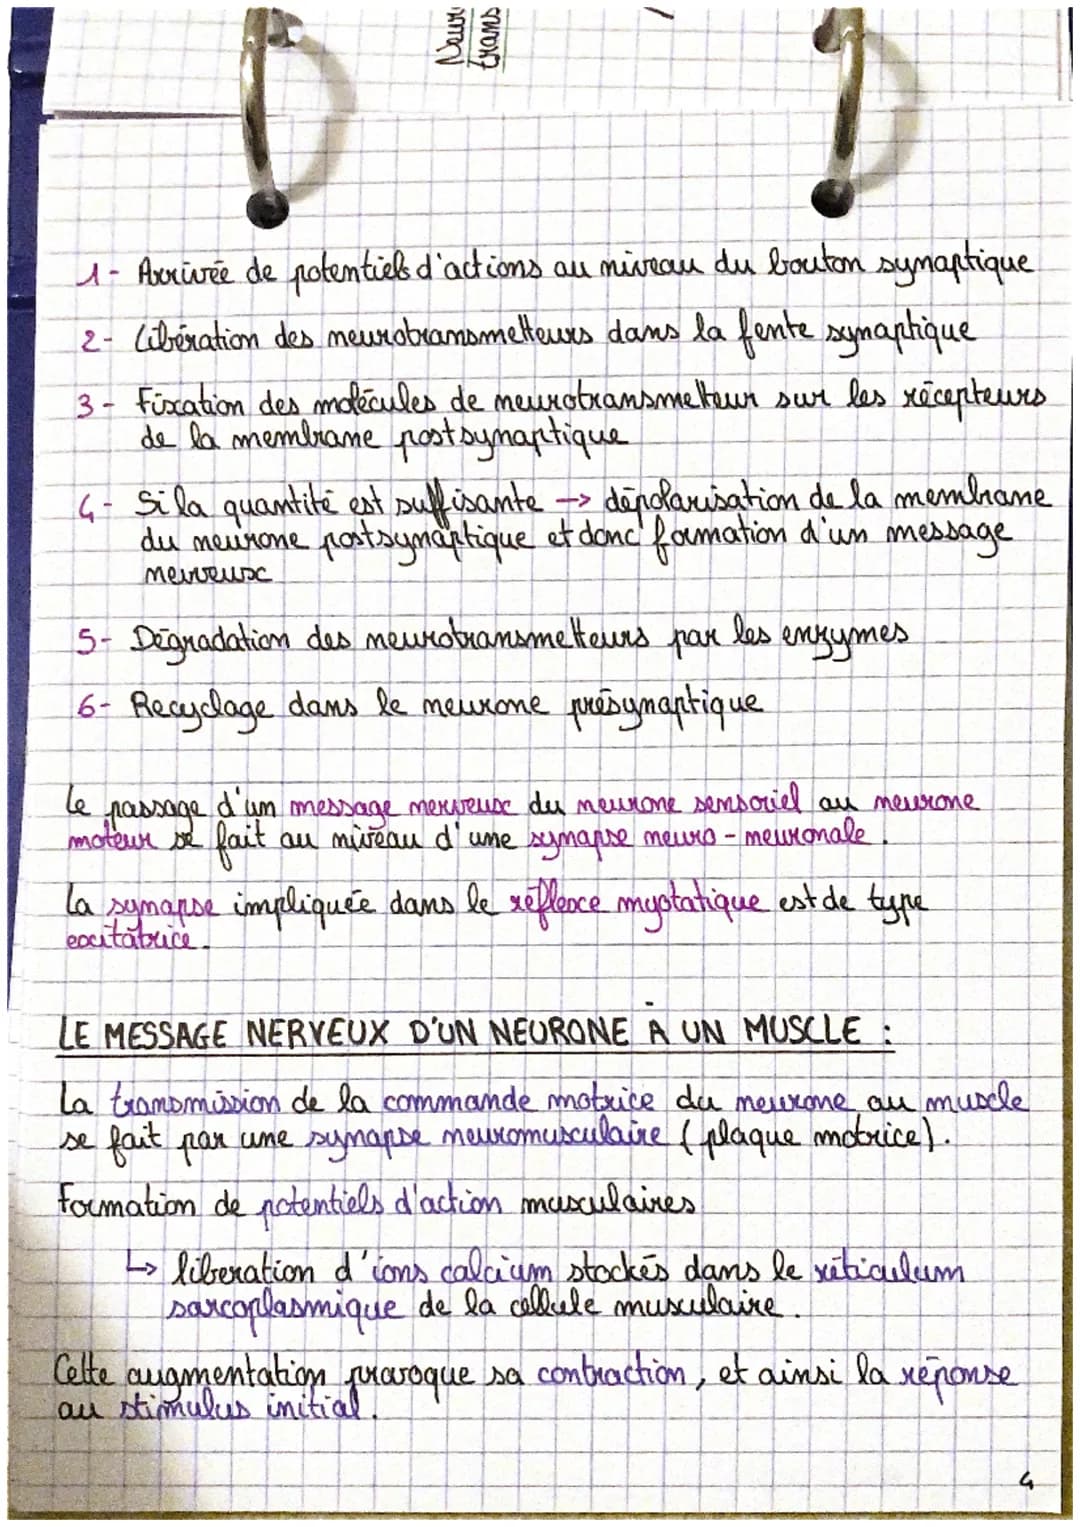 trans
1- Arrivée de potentiels d'actions au niveau du bouton synaptique
2- Libération des neurotransmetteurs dans la fente synaptique
3- Fixation des molécules de neurotransmetteur sur les récepteurs
de la membrane postsynaptique
4- Si la quantité est suffisante → dépolarisation de la membrane
du neurone postsynaptique et donc formation d'un message
nerveux
5- Dégradation des neurotransmetteurs par les enzymes
6- Recyclage dans le neurone présynaptique
Le passage d'un message nerveux du neurone sensoriel au neurone
moteur se fait au niveau d'une synapse neuro-neuronale.
La synapse impliquée dans le réflexe myotatique est de type
excitatrice.
LE MESSAGE NERVEUX D'UN NEURONE À UN MUSCLE :
La transmission de la commande motrice du neurone au muscle
se fait par une synapse neuromusculaire (plaque motrice).
Formation de potentiels d'action musculaires
↳ liberation d'ions calcium stockés dans le réticulum
sarcoplasmique de la cellule musculaire.
Cette augmentation provoque sa contraction, et ainsi la réponse
au stimulus initial.
4